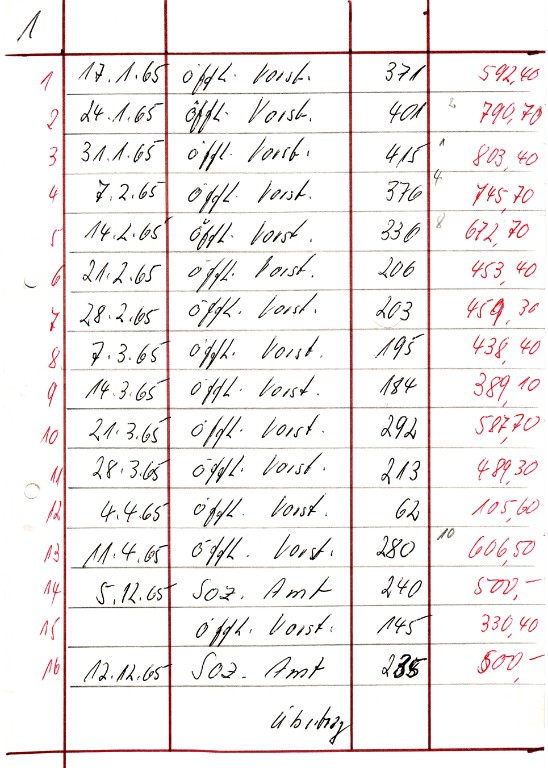 1
1 17.1.65 öfftl. Vorst. 371 592,40
2 24.1.65 öfftl. Vorst. 401 2 790,70
3 31.1.65 öfftl. Vorst. 415 1 803,40
4 7.2.65 öfftl. Vorst. 376 4 745,70
5 14.2.65 öfftl. Vorst. 336 8 672,70
6 21.2.65 öfftl. Vorst. 206 453,40
7 28.2.65 öfftl. Vorst. 203 459,30
8 7.3.65 öfftl. Vorst. 195 438,40
9 14.3.65 öfftl. Vorst. 184 389,10
10 21.3.65 öfftl. Vorst. 292 587,70
11 28.3.65 öfftl. Vorst. 213 489,30
12 4.4.65 öfftl. Vorst. 62 105,60
13 11.4.65 öfftl. Vorst. 280 10 606,50
14 5.12.65 Soz. Amt 240 500,-
15 öfftl. Vorst. 145 330,40
16 12.12.65 Soz. Amt 235 500,-
Übertrag